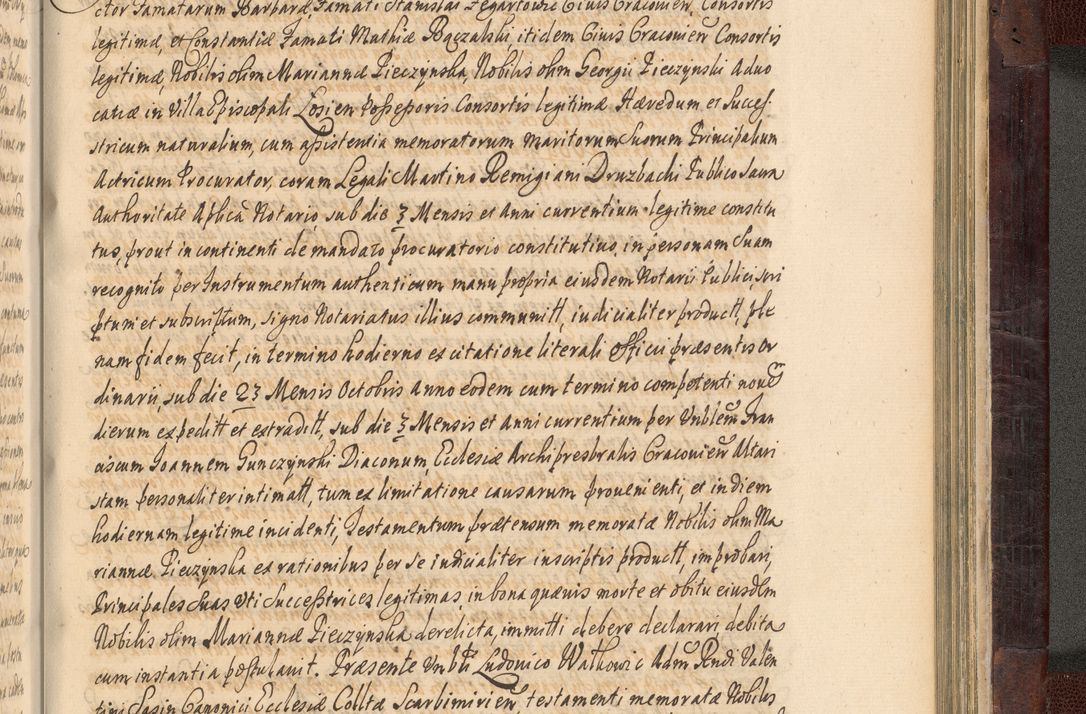 ctor Famatarum Barbaræ, Famati Stanislai Zegartowic Civis Cracovien, Consortis
legitimæ, et Constantiæ Famati Mathiæ Bączalski itidem Civis Cracovien Consortis
legitimæ, Nobilis olim Mariannæ Pieczynska, Nobilis olim Georgii Pieczynski Advo
catiæ in Villa Episcopali Łosien Possessoris Consortis legitimæ Hæredum et Succes-
stricum naturalium, cum assistentia memoratorum maritorum suorum Principalium
Actricum Procurator, coram Legali Martino Remigiani Druzbachi Publico Sacra
Authoritate Aplicâ Notario, sub die 3 Mensis et Anni currentium legitime constitu
tus, prout in continenti de mandato procuratorio constitutivo, in personam suam
recognito per Instrumentum authenticum manu propria eiusdem Notarii Publici, scri
ptum et subscriptum, signo Notariatus illius communitt, iudicialiter productt, ple
nam fidem fecit, in termino hodierno ex citatione literali Officii præsentis or
dinarii, sub die 23 Mensis Octobris Anno eodem cum termino competenti novem
dierum expeditt et extraditt, sub die 3 Mensis et Anni currentium per Vnblem Fran
ciscum Joannem Gunczynski Diaconum, Ecclesiæ Archipresbralis Cracovien Altari
stam personaliter intimatt, tum ex limitatione causarum provenienti, et in diem
hodiernam legitime incidenti, Testamentum prætensum memoratæ Nobilis olim Ma
riannæ Pieczynska ex rationibus per se iudicialiter inscriptis productt, improbari,
Principales suas uti Successtrices legitimas, in bona quævis morte et obitu eiusdem
Nobilis olim Mariannæ Pieczynska derelicta, immitti debere declarari, debita
cum instantia postulavit. Præsente Vnbli Ludovico Watkowic Admo Rndi Valen
tini Sasin Canonici Ecclesiæ Colltæ Scarbimirien, testamenti memoratæ Nobilis